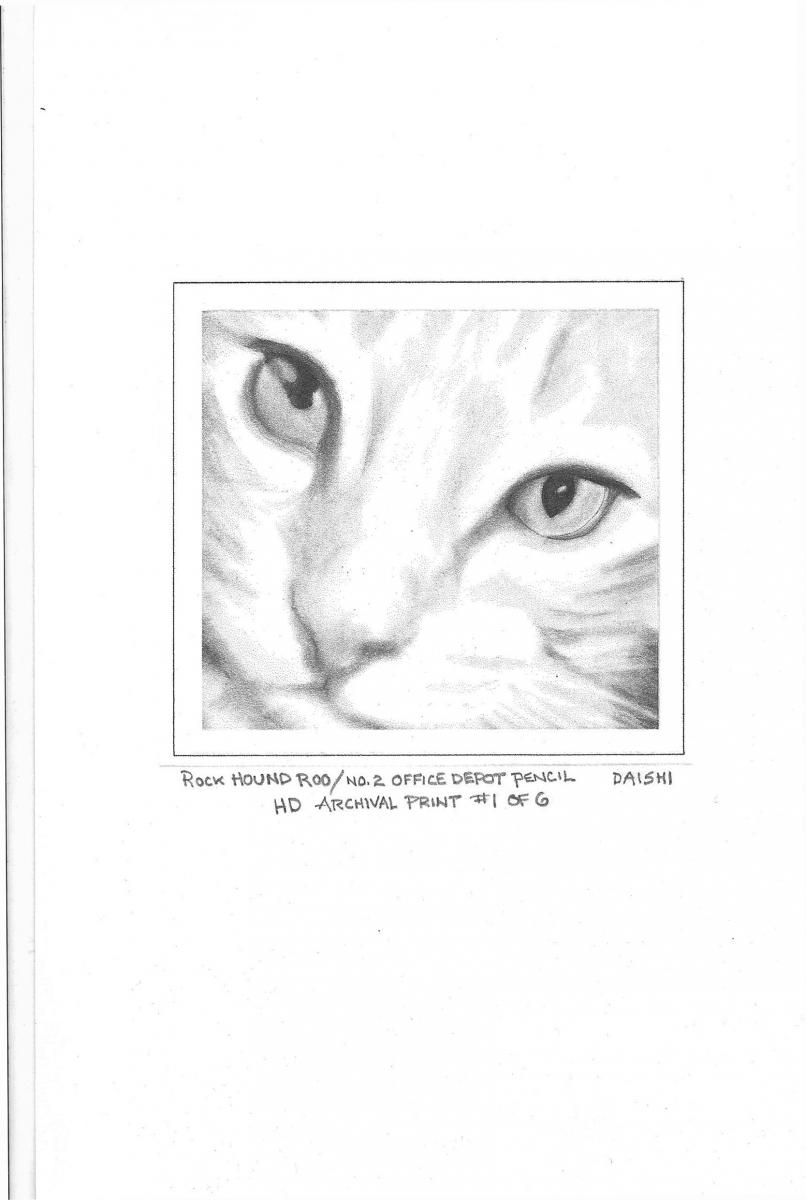 ROCK HOUND ROO/NO.2 OFFICE DEPOT PENCIL DAISHI
HD ARCHIVAL PRINT #1 OF 6